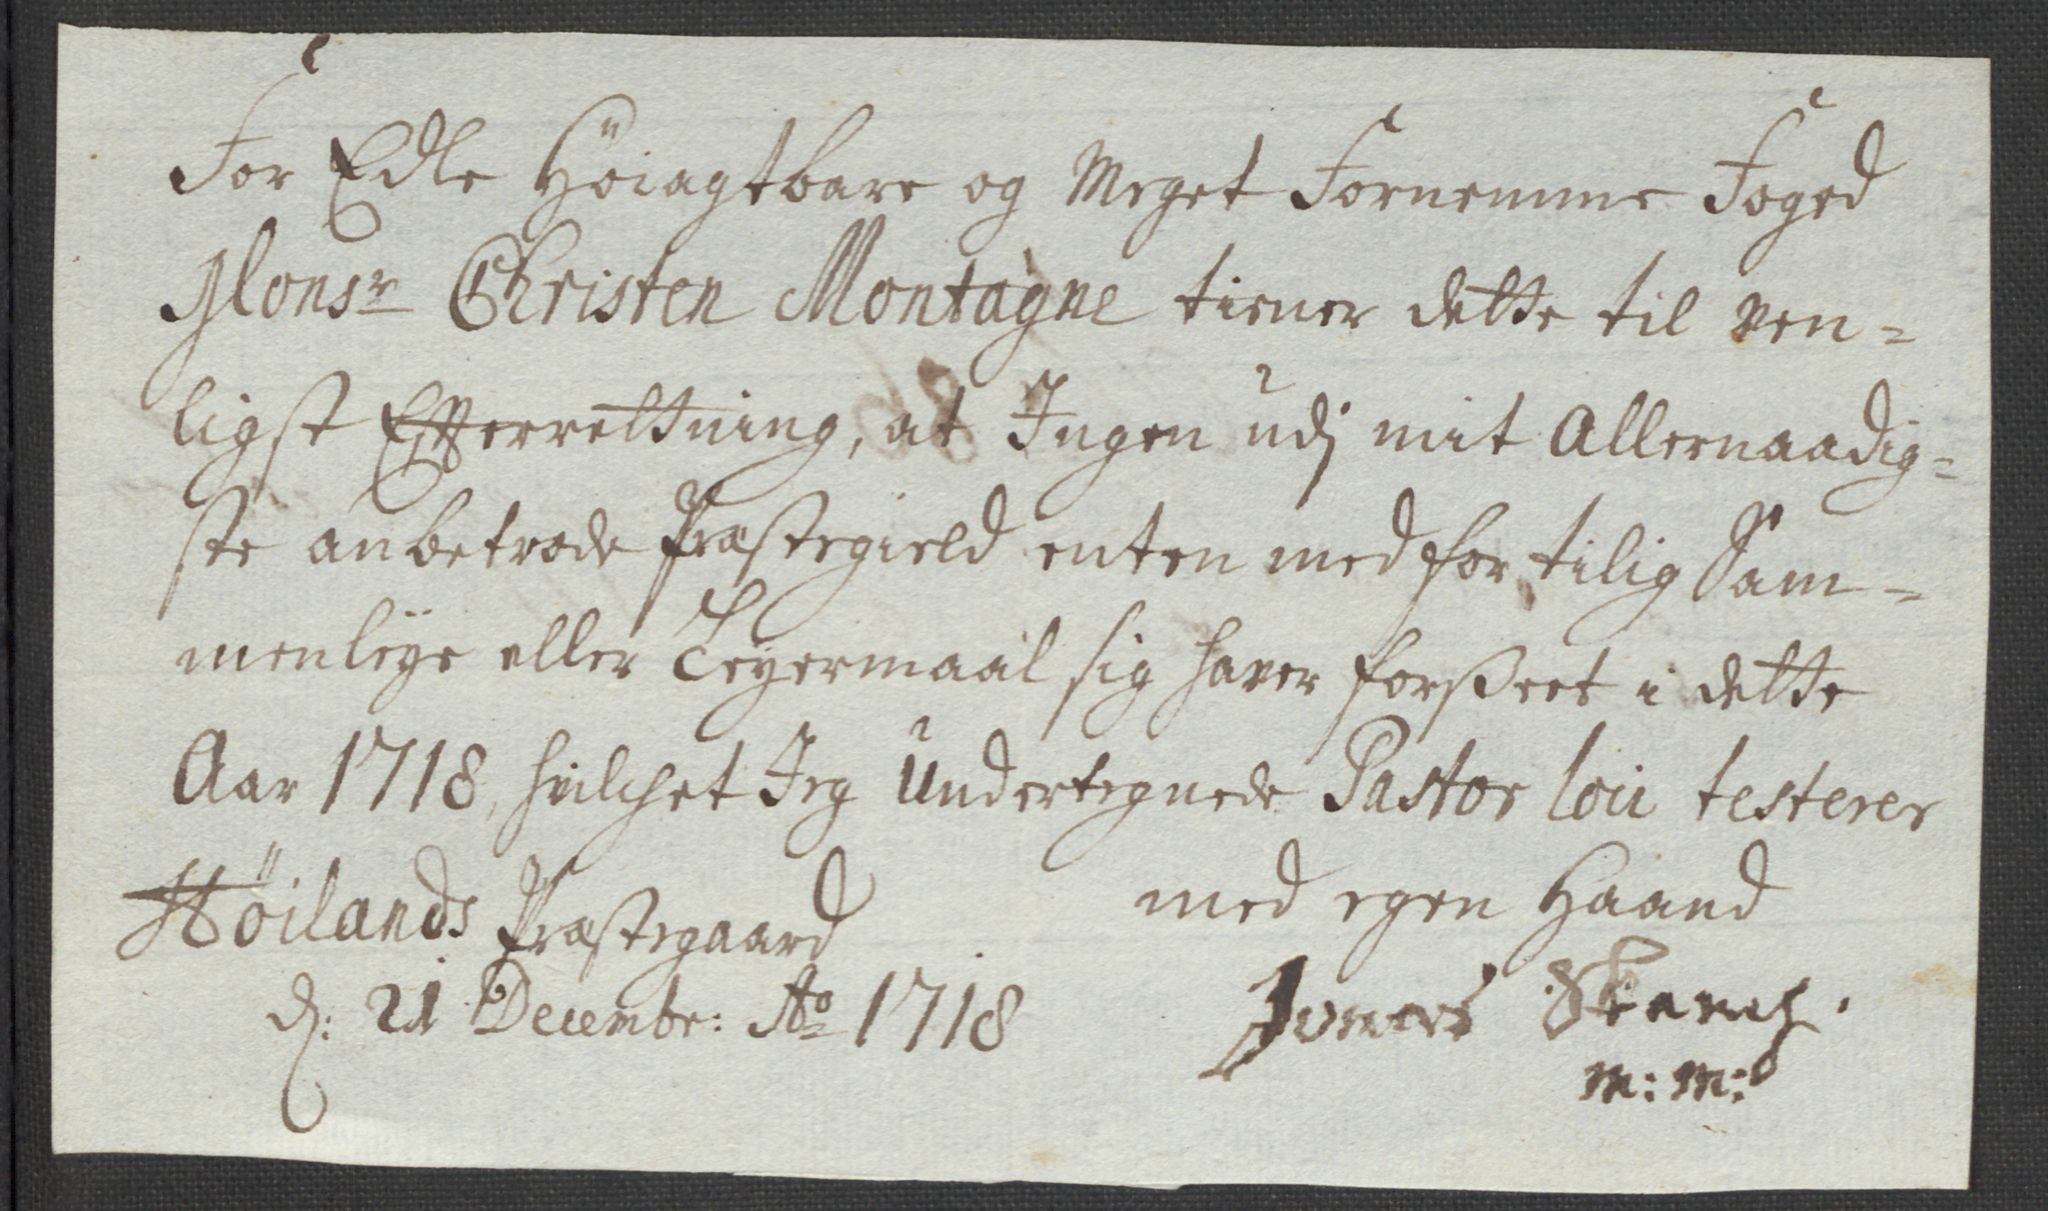 For Edle Höiagtbare og Meget Fornemme Foged
Monsr Christen Montagne tiener dette til ven=
ligst Efterrettning, at Ingen udj mit Allernaadig=
ste anbetrode Præstegield enten med for tilig Sam=
menleye eller Leyermaal sig haver forseet i dette
Aar 1718, hvilchet Jeg Undertegnede Pastor loci testerer
Höilands Præstegaard med egen Haand
d: 21 Decembr: Ao 1718 Jonas
m: m: